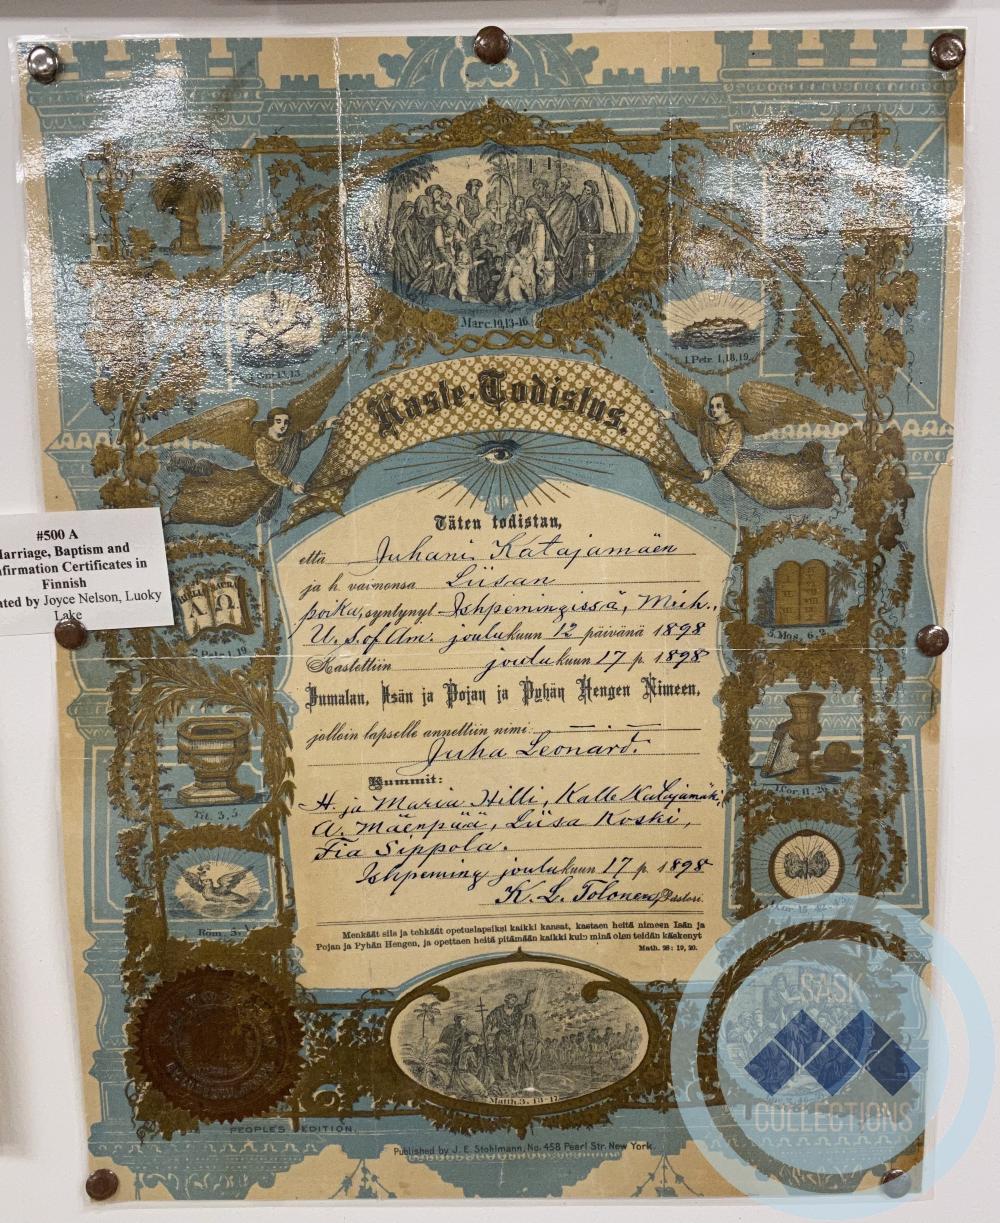 Marc. 10, 13-16.
1. Petr. 1, 18, 19.
Kaste-Todistus.
Täten todistan,
että Juhani Katajamäen
ja h. vaimonsa Liisan
poika, syntynyt Ishpemingissä, Mich.,
U. S. of Am. joulukuun 12 päivänä 1898
Kastettiin joulukuun 17 p. 1898
Jumalan, Isän ja Pojan ja Pyhän Hengen Nimeen,
jolloin lapselle annettiin nimi:
Juha Leonard.
Kummit:
H. ja Maria Hilli, Kalle Katajamäki,
A. Mäenpää, Liisa Koski,
Fia Sippola.
Ishpeming joulukuun 17 p. 1898
K. L. Tolonen, Pastori.
Menkäät siis ja tehkäät opetuslapsiksi kaikki kansat, kastaen heitä nimeen Isän ja
Pojan ja Pyhän Hengen, ja opettaen heitä pitämään kaikki kuin minä olen teidän käskenyt
Math. 28: 19, 20.
#500 A
Marriage, Baptism and
nfirmation Certificates in
Finnish
ated by Joyce Nelson, Luoky
Lake
BIBLIA SACRA
Α Ω
2. Petr. 1, 19.
5. Mos. 6, 2.
Tit. 3, 5.
1. Cor. 11, 26.
Röm. 5,
Matth. 3, 13-17.
PEOPLE'S EDITION.
Published by J. E. Stohlmann, No. 458 Pearl Str. New York.
SASK
COLLECTIONS